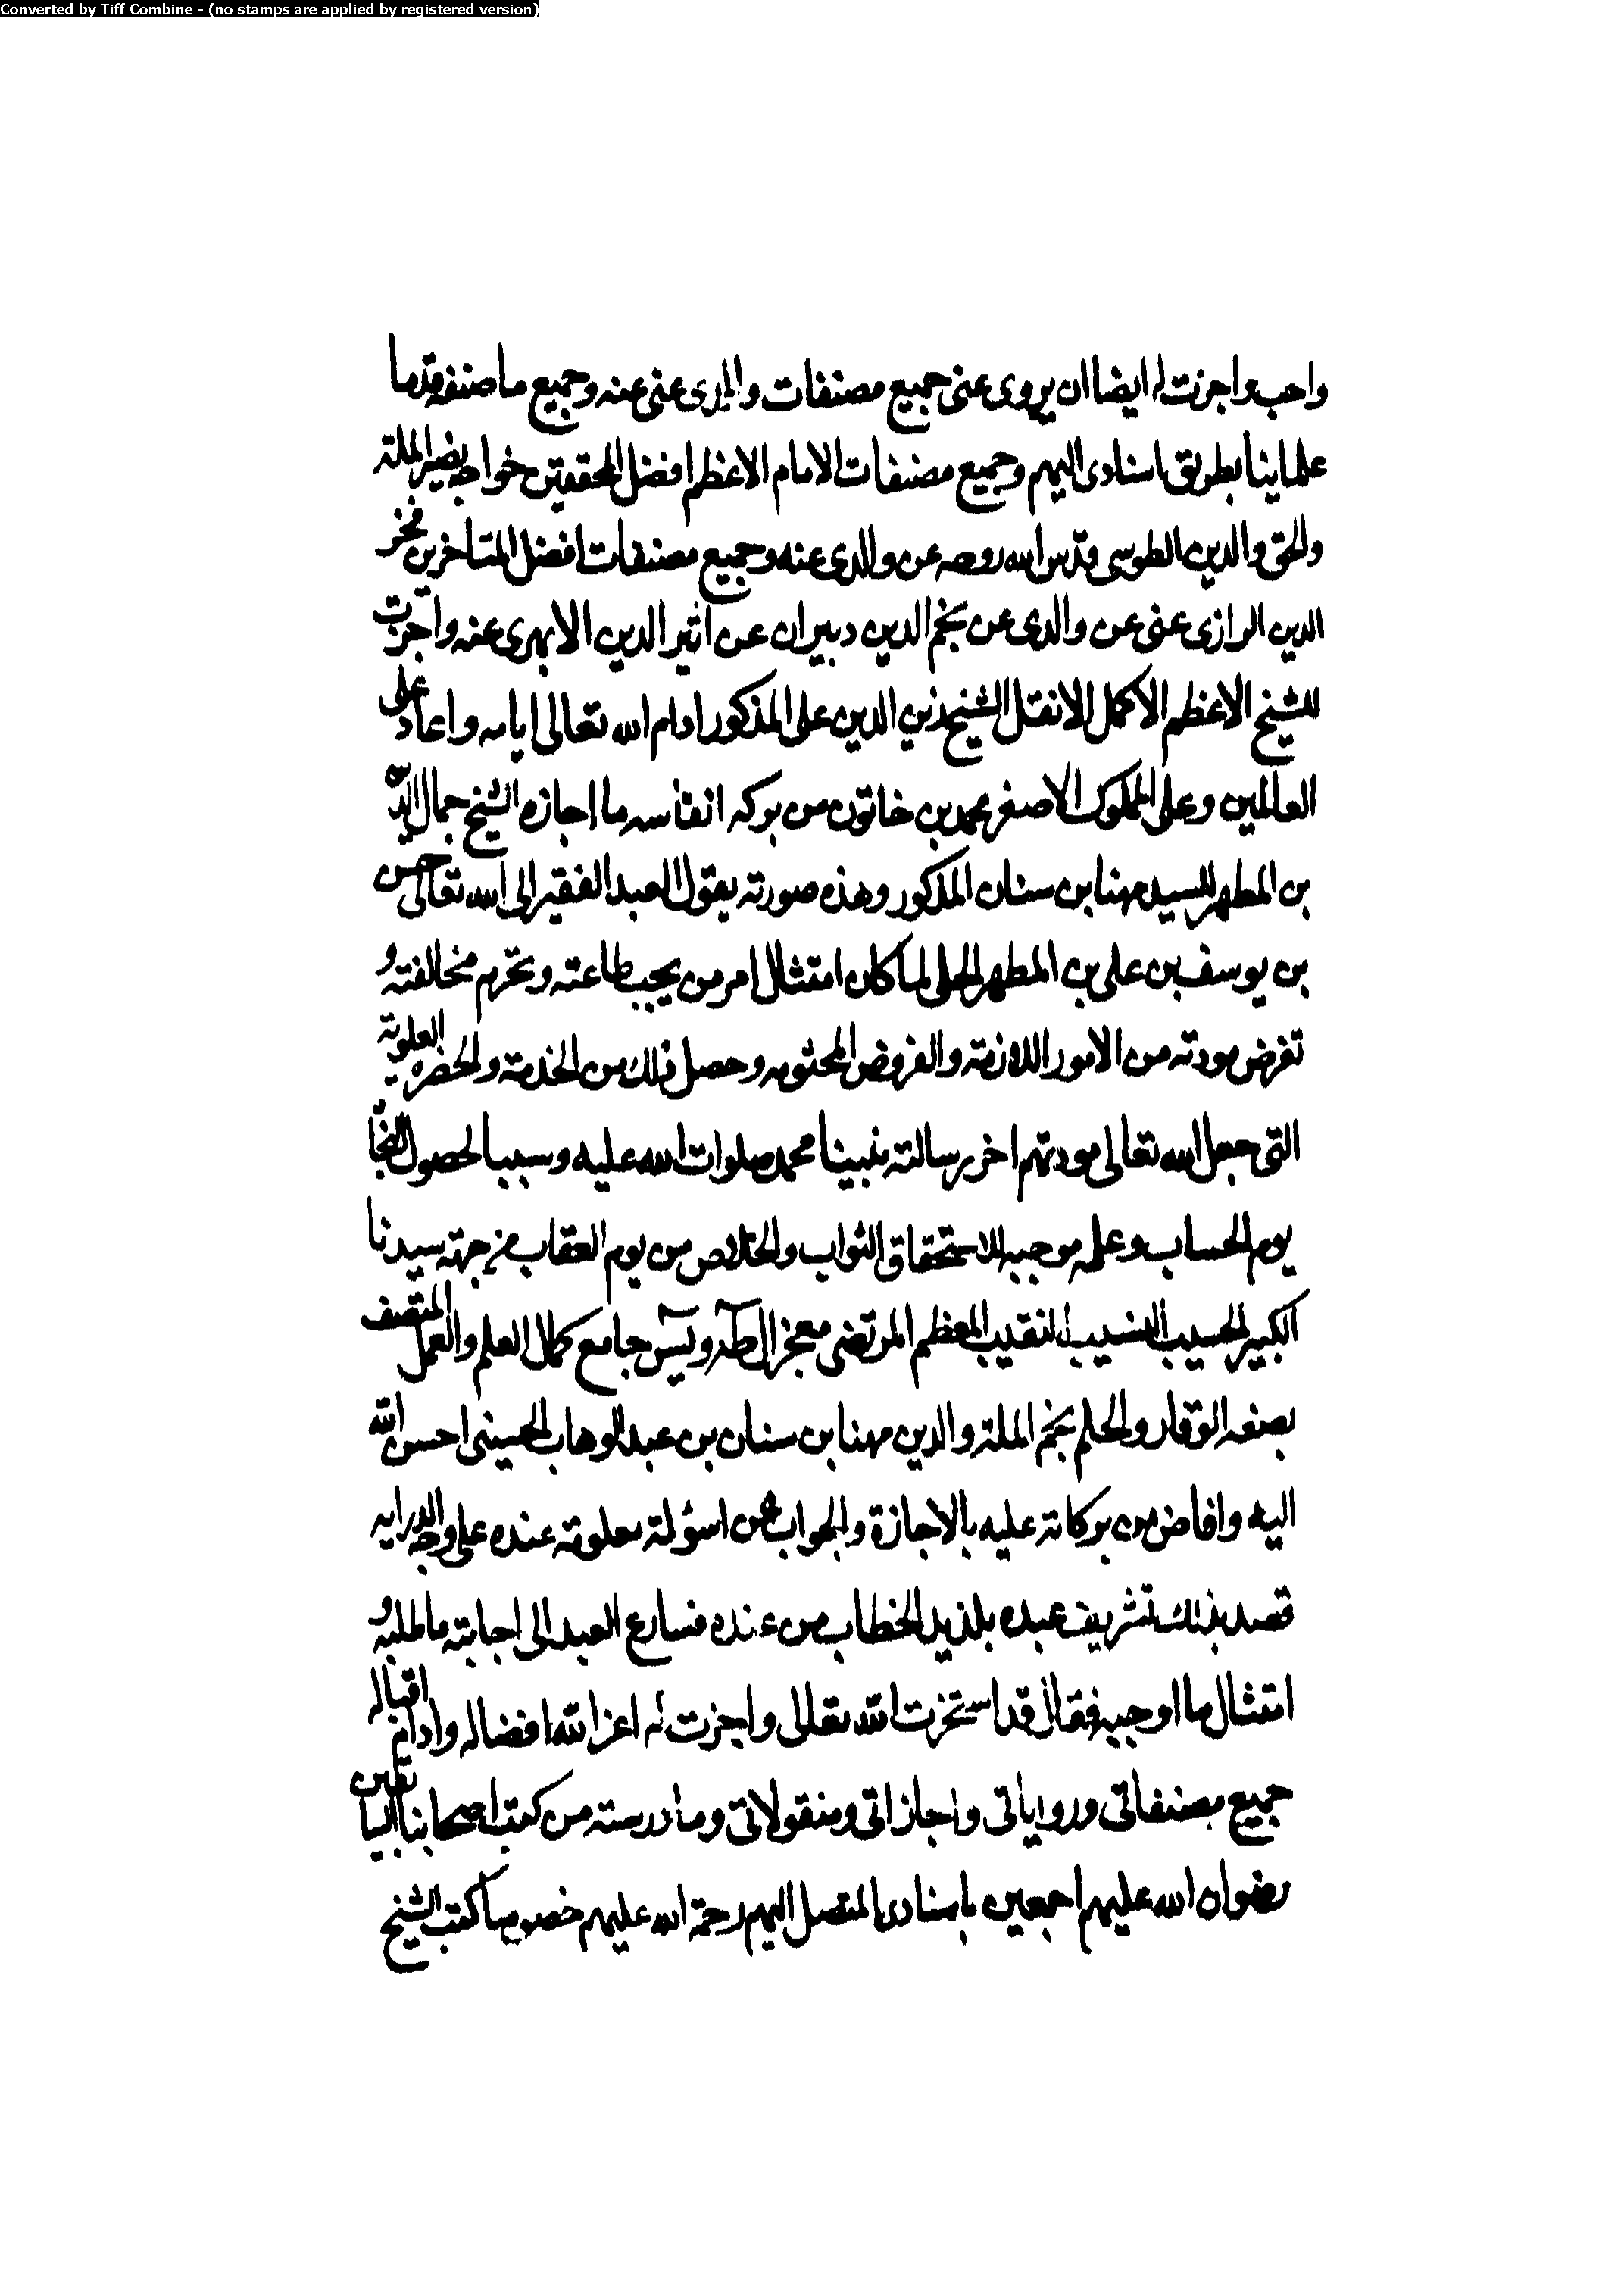 Converted by Tiff Combine - (no stamps are applied by registered version)
واحب واجزت له ايضا ان يروى عنى جميع مصنفات والدى عنى عنه وجميع ما صنفه قدما
علماينا بطريق اسنادى اليهم وجميع مصنفات الامام الاعظم افضل المحققين خواجه نصير الملة
والحق والدين الطوسى قدس الله روحه عن والدى عنه وجميع مصنفات افضل المتاخرين فخر
الدين الرازى عنى عن والدى عن نجم الدين دبيران عن اثير الدين الابهرى عنه واجزت
للشيخ الاعظم الاكمل الشيخ زين الدين على المذكور ادام الله تعالى ايامه واعاد على
العالمين وعلى المملوك الاصغر محمد بن خاتون من بركه انفاسه ما اجازه الشيخ جمال الدين
بن المطهر للسيد مهنا بن سنان المذكور وهذه صورته يقول العبد الفقير الى الله تعالى حسن
بن يوسف بن على بن المطهر الحلى لما كان امتثال امر من يجب طاعته وتحرم مخالفته و
تفرض مودته من الامور اللازمة والفروض المحتومه وحصل ذلك من الخدمة والحضره العلوية
التى جعل الله تعالى مودتهم اخر رسالته نبينا محمد صلوات الله عليه وسببا لحصول النجاة
يوم الحساب وعلة موجبه لاستحقاق الثواب والخلاص من يوم العقاب من جهة سيدنا
الكبير الحسيب النسيب النقيب المعظم المرتضى مفخر ال طه ويس جامع كمال العلم والعمل المتصف
بصفه الوقار والحلم نجم الملة والدين مهنا بن سنان بن عبد الوهاب الحسينى احسن الله
اليه وافاض من بركاته عليه بالاجازة والجواب عن اسؤلة معلومة عنده على وجه الدرايه
قصد بذلك تشريف عبده بلذيذ الخطاب من عنده فسارع العبد الى اجابته ما طلبه و
امتثال ما اوجبه فقال قد استخرت الله تعالى واجزت له اعز الله افضاله وادام اقباله
جميع مصنفاتى وروياتى واجازاتى ومنقولاتى وما درسته من كتب اصحابنا السابقين
رضوان الله عليهم اجمعين باسنادى المتصل اليهم رحمة الله عليهم خصوصا كتب الشيخ